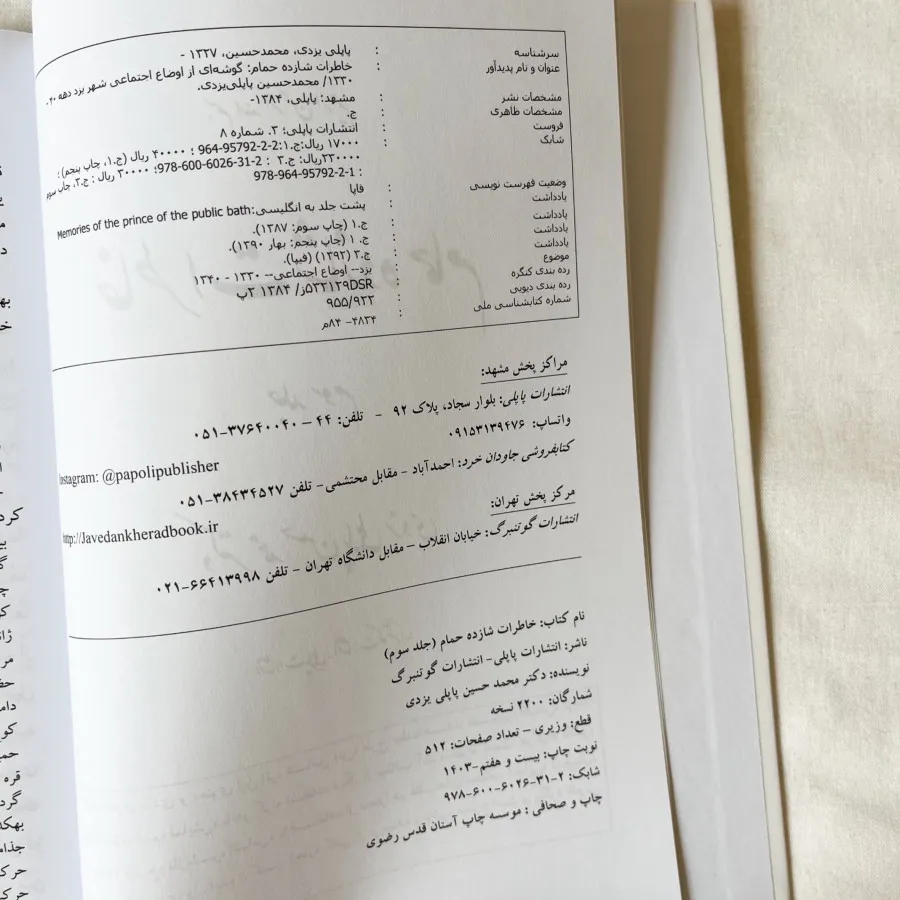 سرشناسه : پاپلی یزدی، محمدحسین، ۱۳۲۷ -
عنوان و نام پدیدآور : خاطرات شازده حمام: گوشه‌ای از اوضاع اجتماعی شهر یزد دهه ۴۰ـ
۱۳۳۰/ محمدحسین پاپلی‌یزدی.
مشخصات نشر : مشهد: پاپلی، ۱۳۸۴-
مشخصات ظاهری : ج.
فروست : انتشارات پاپلی؛ ۳. شماره ۸
شابک : ۱۷۰۰۰ ریال:ج.۱:2-2-95792-964 ؛ ۴۰۰۰۰ ریال (ج.۱، چاپ پنجم) ؛
۲۳۰۰۰۰ریال: ج.۳ : 2-31-6026-600-978؛ ۳۰۰۰۰ ریال : ج.۲، چاپ سوم
: 978-964-95792-2-1
وضعیت فهرست نویسی : فاپا
یادداشت : پشت جلد به انگلیسی:Memories of the prince of the public bath
یادداشت : ج.۱ (چاپ سوم: ۱۳۸۷).
یادداشت : ج. ۱ (چاپ پنجم: بهار ۱۳۹۰).
یادداشت : ج.۳ (۱۳۹۲) (فیپا).
موضوع : یزد-- اوضاع اجتماعی-- ۱۳۳۰ - ۱۳۴۰
رده بندی کنگره : DSR۵۳۳۱۲۹ز/ ۱۳۸۴ ۲پ
رده بندی دیویی : ۹۵۵/۹۲۳
شماره کتابشناسی ملی : ۴۸۳۴- ۸۴م
مراکز پخش مشهد:
انتشارات پاپلی: بلوار سجاد، پلاک ۹۲ - تلفن: ۴۴ – ۳۷۶۴۰۰۴۰-۰۵۱
واتساپ: ۰۹۱۵۳۱۳۹۴۷۶
Instagram: @papolipublisher
کتابفروشی جاودان خرد: احمدآباد - مقابل محتشمی- تلفن ۳۸۴۳۴۵۲۷-۰۵۱
http://Javedankheradbook.ir
مرکز پخش تهران:
انتشارات گوتنبرگ: خیابان انقلاب – مقابل دانشگاه تهران – تلفن ۶۶۴۱۳۹۹۸-۰۲۱
نام کتاب: خاطرات شازده حمام (جلد سوم)
ناشر: انتشارات پاپلی- انتشارات گوتنبرگ
نویسنده: دکتر محمد حسین پاپلی یزدی
شمارگان: ۲۲۰۰ نسخه
قطع: وزیری – تعداد صفحات: ۵۱۲
نوبت چاپ: بیست و هفتم-۱۴۰۳
شابک: ۲-۳۱-۶۰۲۶-۶۰۰-۹۷۸
چاپ و صحافی : موسسه چاپ آستان قدس رضوی